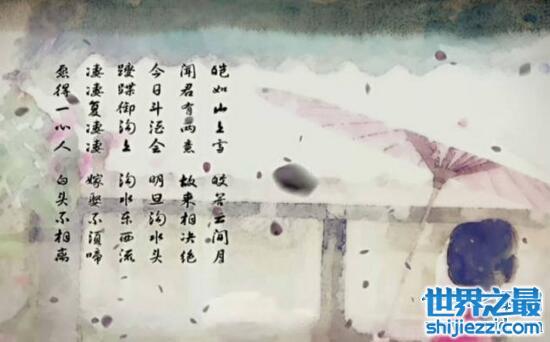 皑如山上雪 皎若云间月
闻君有两意 故来相决绝
今日斗酒会 明旦沟水头
躞蹀御沟上 沟水东西流
凄凄复凄凄 嫁娶不须啼
愿得一心人 白头不相离
世界之最
shijiezzi.com